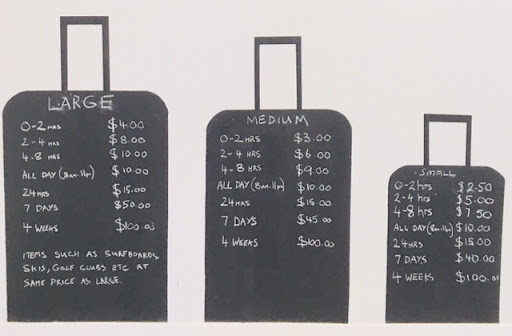 LARGE
0-2 HRS $4.00
2-4 HRS $8.00
4-8 HRS $10.00
ALL DAY (8am-11pm) $10.00
24HRS $15.00
7 DAYS $50.00
4 WEEKS $100.00
ITEMS SUCH AS SURFBOARDS
SKIS, GOLF CLUBS ETC AT
SAME PRICE AS LARGE.
MEDIUM
0-2 HRS $3.00
2-4 HRS $6.00
4-8 HRS $9.00
ALL DAY (8am-11pm) $10.00
24HRS $15.00
7 DAYS $45.00
4 WEEKS $100.00
SMALL
0-2 hrs $2.50
2-4 hrs $5.00
4-8 hrs $7.50
ALL DAY (8am-11p) $10.00
24HRS $15.00
7 DAYS $40.00
4 WEEKS $100.00